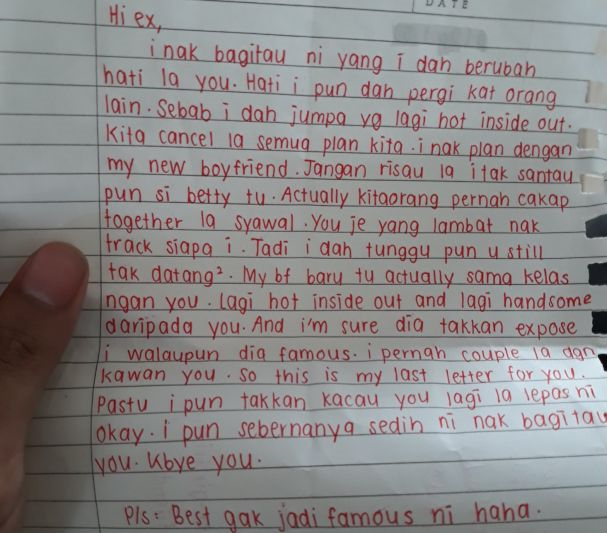 DATE
Hi ex,
i nak bagitau ni yang i dah berubah
hati la you. Hati i pun dah pergi kat orang
lain. Sebab i dah jumpa yg lagi hot inside out.
Kita cancel la semua plan kita. i nak plan dengan
my new boyfriend. Jangan risau la i tak santau
pun si betty tu. Actually kitaorang pernah cakap
together la syawal. You je yang lambat nak
track siapa i. Jadi i dah tunggu pun u still
tak datang². My bf baru tu actually sama kelas
ngan you. Lagi hot inside out and lagi handsome
daripada you. And i'm sure dia takkan expose
i walaupun dia famous. i pernah couple la dgn
kawan you. So this is my last letter for you.
Pastu i pun takkan kacau you lagi la lepas ni
okay. i pun sebernanya sedih ni nak bagitau
you. Kbye you.
P/s: Best gak jadi famous ni haha.